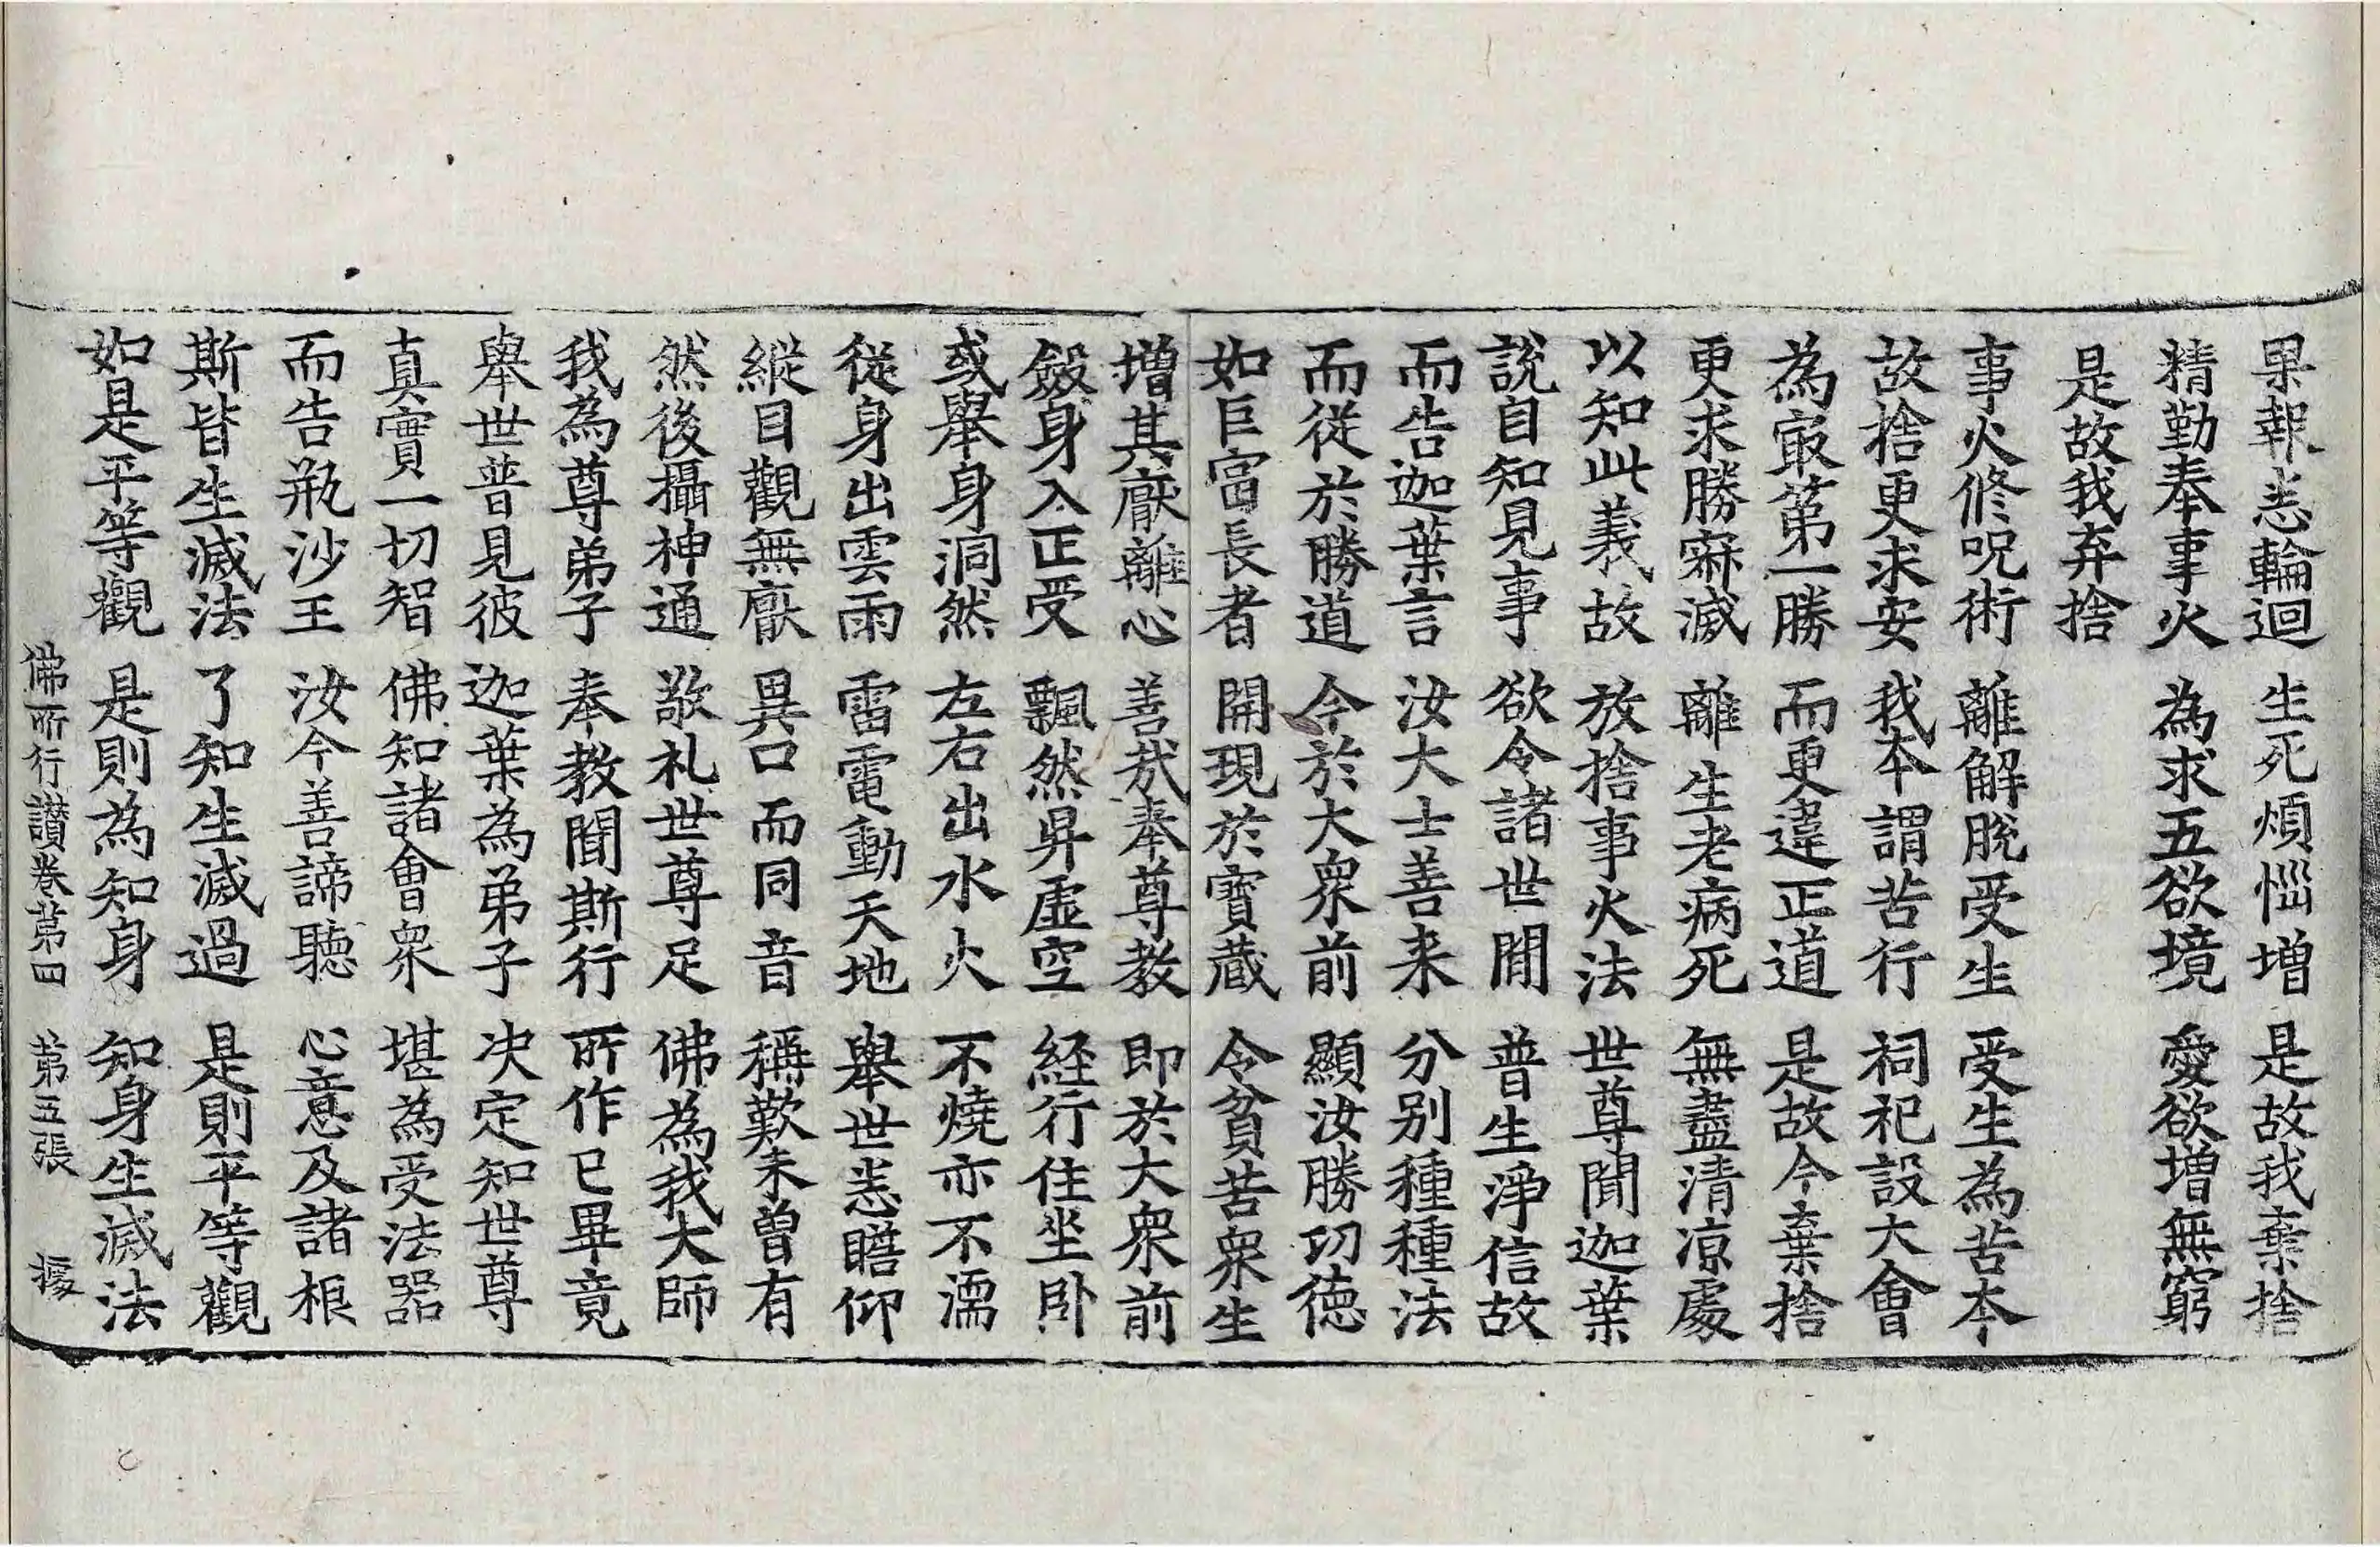 果報恙輪迴 生死煩惱增 是故我棄捨
精勤奉事火 為求五欲境 愛欲增無窮
是故我弃捨
事火修呪術 離解脫受生 受生為苦本
故捨更求安 我本謂苦行 祠祀設大會
為㝡苐一勝 而更違正道 是故今棄捨
更求勝寂滅 離生老病死 無盡清凉處
以知此義故 放捨事火法 世尊聞迦葉
說自知見事 欲令諸世間 普生淨信故
而告迦葉言 汝大士善来 分别種種法
而從於勝道 今於大衆前 顯汝勝功德
如巨富長者 開現於寶蔵 令貧苦衆生
增其厭離心 善哉奉尊教 即於大衆前
斂身入正受 飄然昇虛空 経行住坐卧
或舉身洞然 左右出水火 不燒亦不濡
從身出雲雨 雷電動天地 舉世悉瞻仰
縱目觀無厭 異口而同音 稱歎未曾有
然後攝神通 敬礼世尊足 佛為我大師
我為尊弟子 奉教聞斯行 所作已畢竟
舉世普見彼 迦葉為弟子 决定知世尊
真實一切智 佛知諸會衆 堪為受法器
而告瓶沙王 汝今善諦聽 心意及諸根
斯皆生滅法 了知生滅過 是則平等觀
如是平等觀 是則為知身 知身生滅法
佛所行讃卷苐四 苐五張 㨿